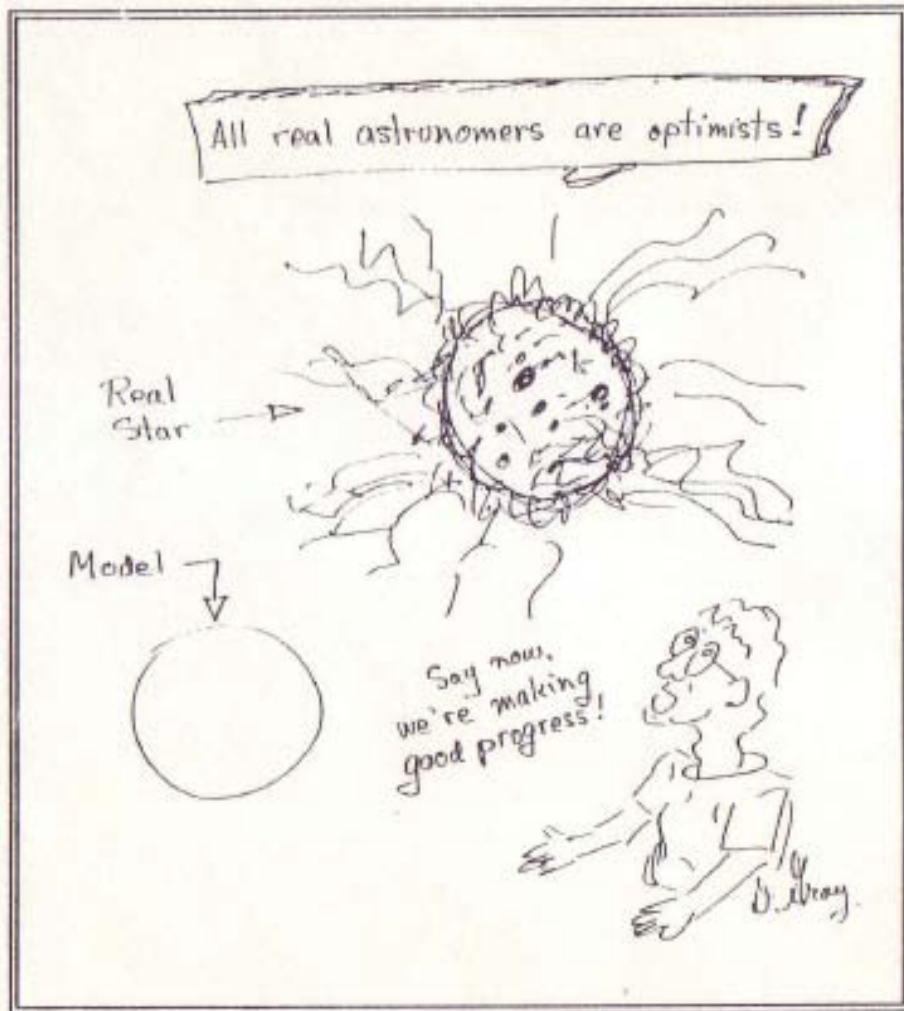 All real astronomers are optimists!
Real
Star
Model
Say now,
we're making
good progress!
D. Gray.